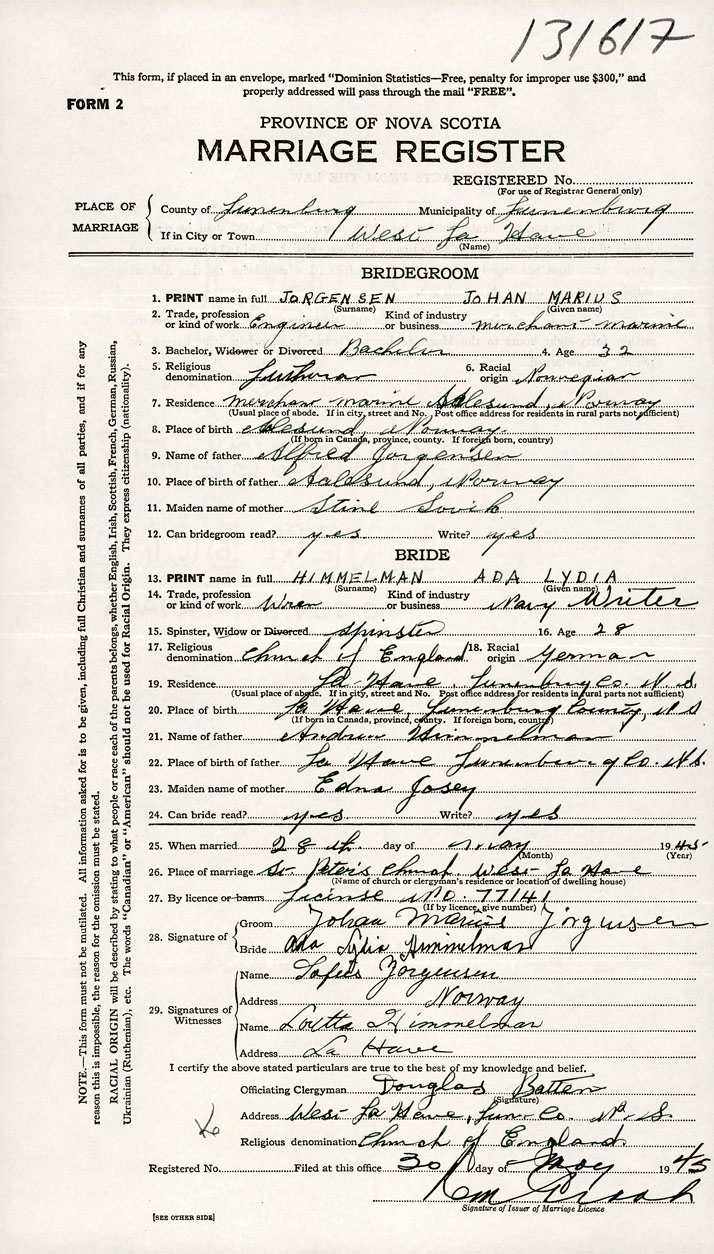 131617
This form, if placed in an envelope, marked “Dominion Statistics—Free, penalty for improper use $300,” and
properly addressed will pass through the mail “FREE”.
FORM 2
PROVINCE OF NOVA SCOTIA
MARRIAGE REGISTER
REGISTERED No.
(For use of Registrar General only)
PLACE OF MARRIAGE
County of Lunenburg Municipality of Lunenburg
If in City or Town West La Have
(Name)
BRIDEGROOM
1. PRINT name in full JORGENSEN JOHAN MARIUS
(Surname) (Given name)
2. Trade, profession or kind of work Engineer Kind of industry or business merchant marine
3. Bachelor, Widower or Divorced Bachelor 4. Age 32
5. Religious denomination Lutheran 6. Racial origin Norwegian
7. Residence merchant marine Aalesund, Norway
(Usual place of abode. If in city, street and No. Post office address for residents in rural parts not sufficient)
8. Place of birth Aalesund, Norway.
(If born in Canada, province, county. If foreign born, country)
9. Name of father Alfred Jorgensen
10. Place of birth of father Aalesund, Norway
11. Maiden name of mother Stine Sovik
12. Can bridegroom read? yes. Write? yes
BRIDE
13. PRINT name in full HIMMELMAN ADA LYDIA
(Surname) (Given name)
14. Trade, profession or kind of work Wren Kind of industry or business Navy Writer
15. Spinster, Widow or Divorced Spinster 16. Age 28
17. Religious denomination Church of England 18. Racial origin German
19. Residence La Have, Lunenburg Co. N.S.
(Usual place of abode. If in city, street and No. Post office address for residents in rural parts not sufficient)
20. Place of birth La Have, Lunenburg County, N S
(If born in Canada, province, county. If foreign born, country)
21. Name of father Andrew Himmelman
22. Place of birth of father La Have Lunenburg Co. N.S.
23. Maiden name of mother Edna Josey
24. Can bride read? yes. Write? yes
25. When married 28 th. day of May 1945
(Month) (Year)
26. Place of marriage St Peter's Church West La Have
(Name of church or clergyman's residence or location of dwelling house)
27. By licence or banns License No. 77141
(If by licence, give number)
28. Signature of
Groom Johan Marius Jörgensen
Bride Ada Lydia Himmelman
29. Signatures of Witnesses
Name Jorgensen
Address Norway
Name Loretta Himmelman
Address La Have
I certify the above stated particulars are true to the best of my knowledge and belief.
Officiating Clergyman Douglas Batten
(Signature)
Address West La Have, Lun. Co. N. S.
Religious denomination Church of England
Registered No. Filed at this office 30 day of May 1945
Signature of Issuer of Marriage Licence
[SEE OTHER SIDE]
NOTE.—This form must not be mutilated. All information asked for is to be given, including full Christian and surnames of all parties, and if for any
reason this is impossible, the reason for the omission must be stated.
RACIAL ORIGIN will be described by stating to what people or race each of the parents belongs, whether English, Irish, Scottish, French, German, Russian,
Ukrainian (Ruthenian), etc. The words “Canadian” or “American” should not be used for Racial Origin. They express citizenship (nationality).